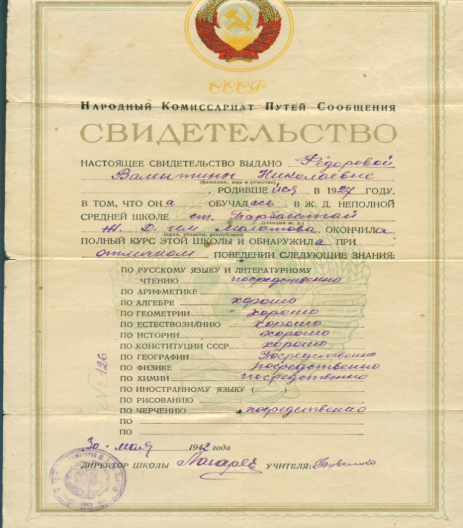 СССР
НАРОДНЫЙ КОМИССАРИАТ ПУТЕЙ СООБЩЕНИЯ
СВИДЕТЕЛЬСТВО
НАСТОЯЩЕЕ СВИДЕТЕЛЬСТВО ВЫДАНО Фёдоровой
Валентине Николаевне
(фамилия, имя и отчество)
, РОДИВШЕЙСЯ В 1927 ГОДУ,
В ТОМ, ЧТО ОНА ОБУЧАЛАСЬ В Ж. Д. НЕПОЛНОЙ
СРЕДНЕЙ ШКОЛЕ ст.
Ж. Д. им Молотова ОКОНЧИЛА
(края, области, республики)
ПОЛНЫЙ КУРС ЭТОЙ ШКОЛЫ И ОБНАРУЖИЛА ПРИ
отличном ПОВЕДЕНИИ СЛЕДУЮЩИЕ ЗНАНИЯ:
ПО РУССКОМУ ЯЗЫКУ И ЛИТЕРАТУРНОМУ
ЧТЕНИЮ посредственно
ПО АРИФМЕТИКЕ
ПО АЛГЕБРЕ хорошо
ПО ГЕОМЕТРИИ хорошо
ПО ЕСТЕСТВОЗНАНИЮ хорошо
ПО ИСТОРИИ хорошо
ПО КОНСТИТУЦИИ СССР хорошо
ПО ГЕОГРАФИИ Посредственно
ПО ФИЗИКЕ посредственно
ПО ХИМИИ посредственно
ПО ИНОСТРАННОМУ ЯЗЫКУ ( )
ПО РИСОВАНИЮ
ПО ЧЕРЧЕНИЮ посредственно
ПО
ПО
№ 126
30 мая 1942 года
ДИРЕКТОР ШКОЛЫ УЧИТЕЛЯ: